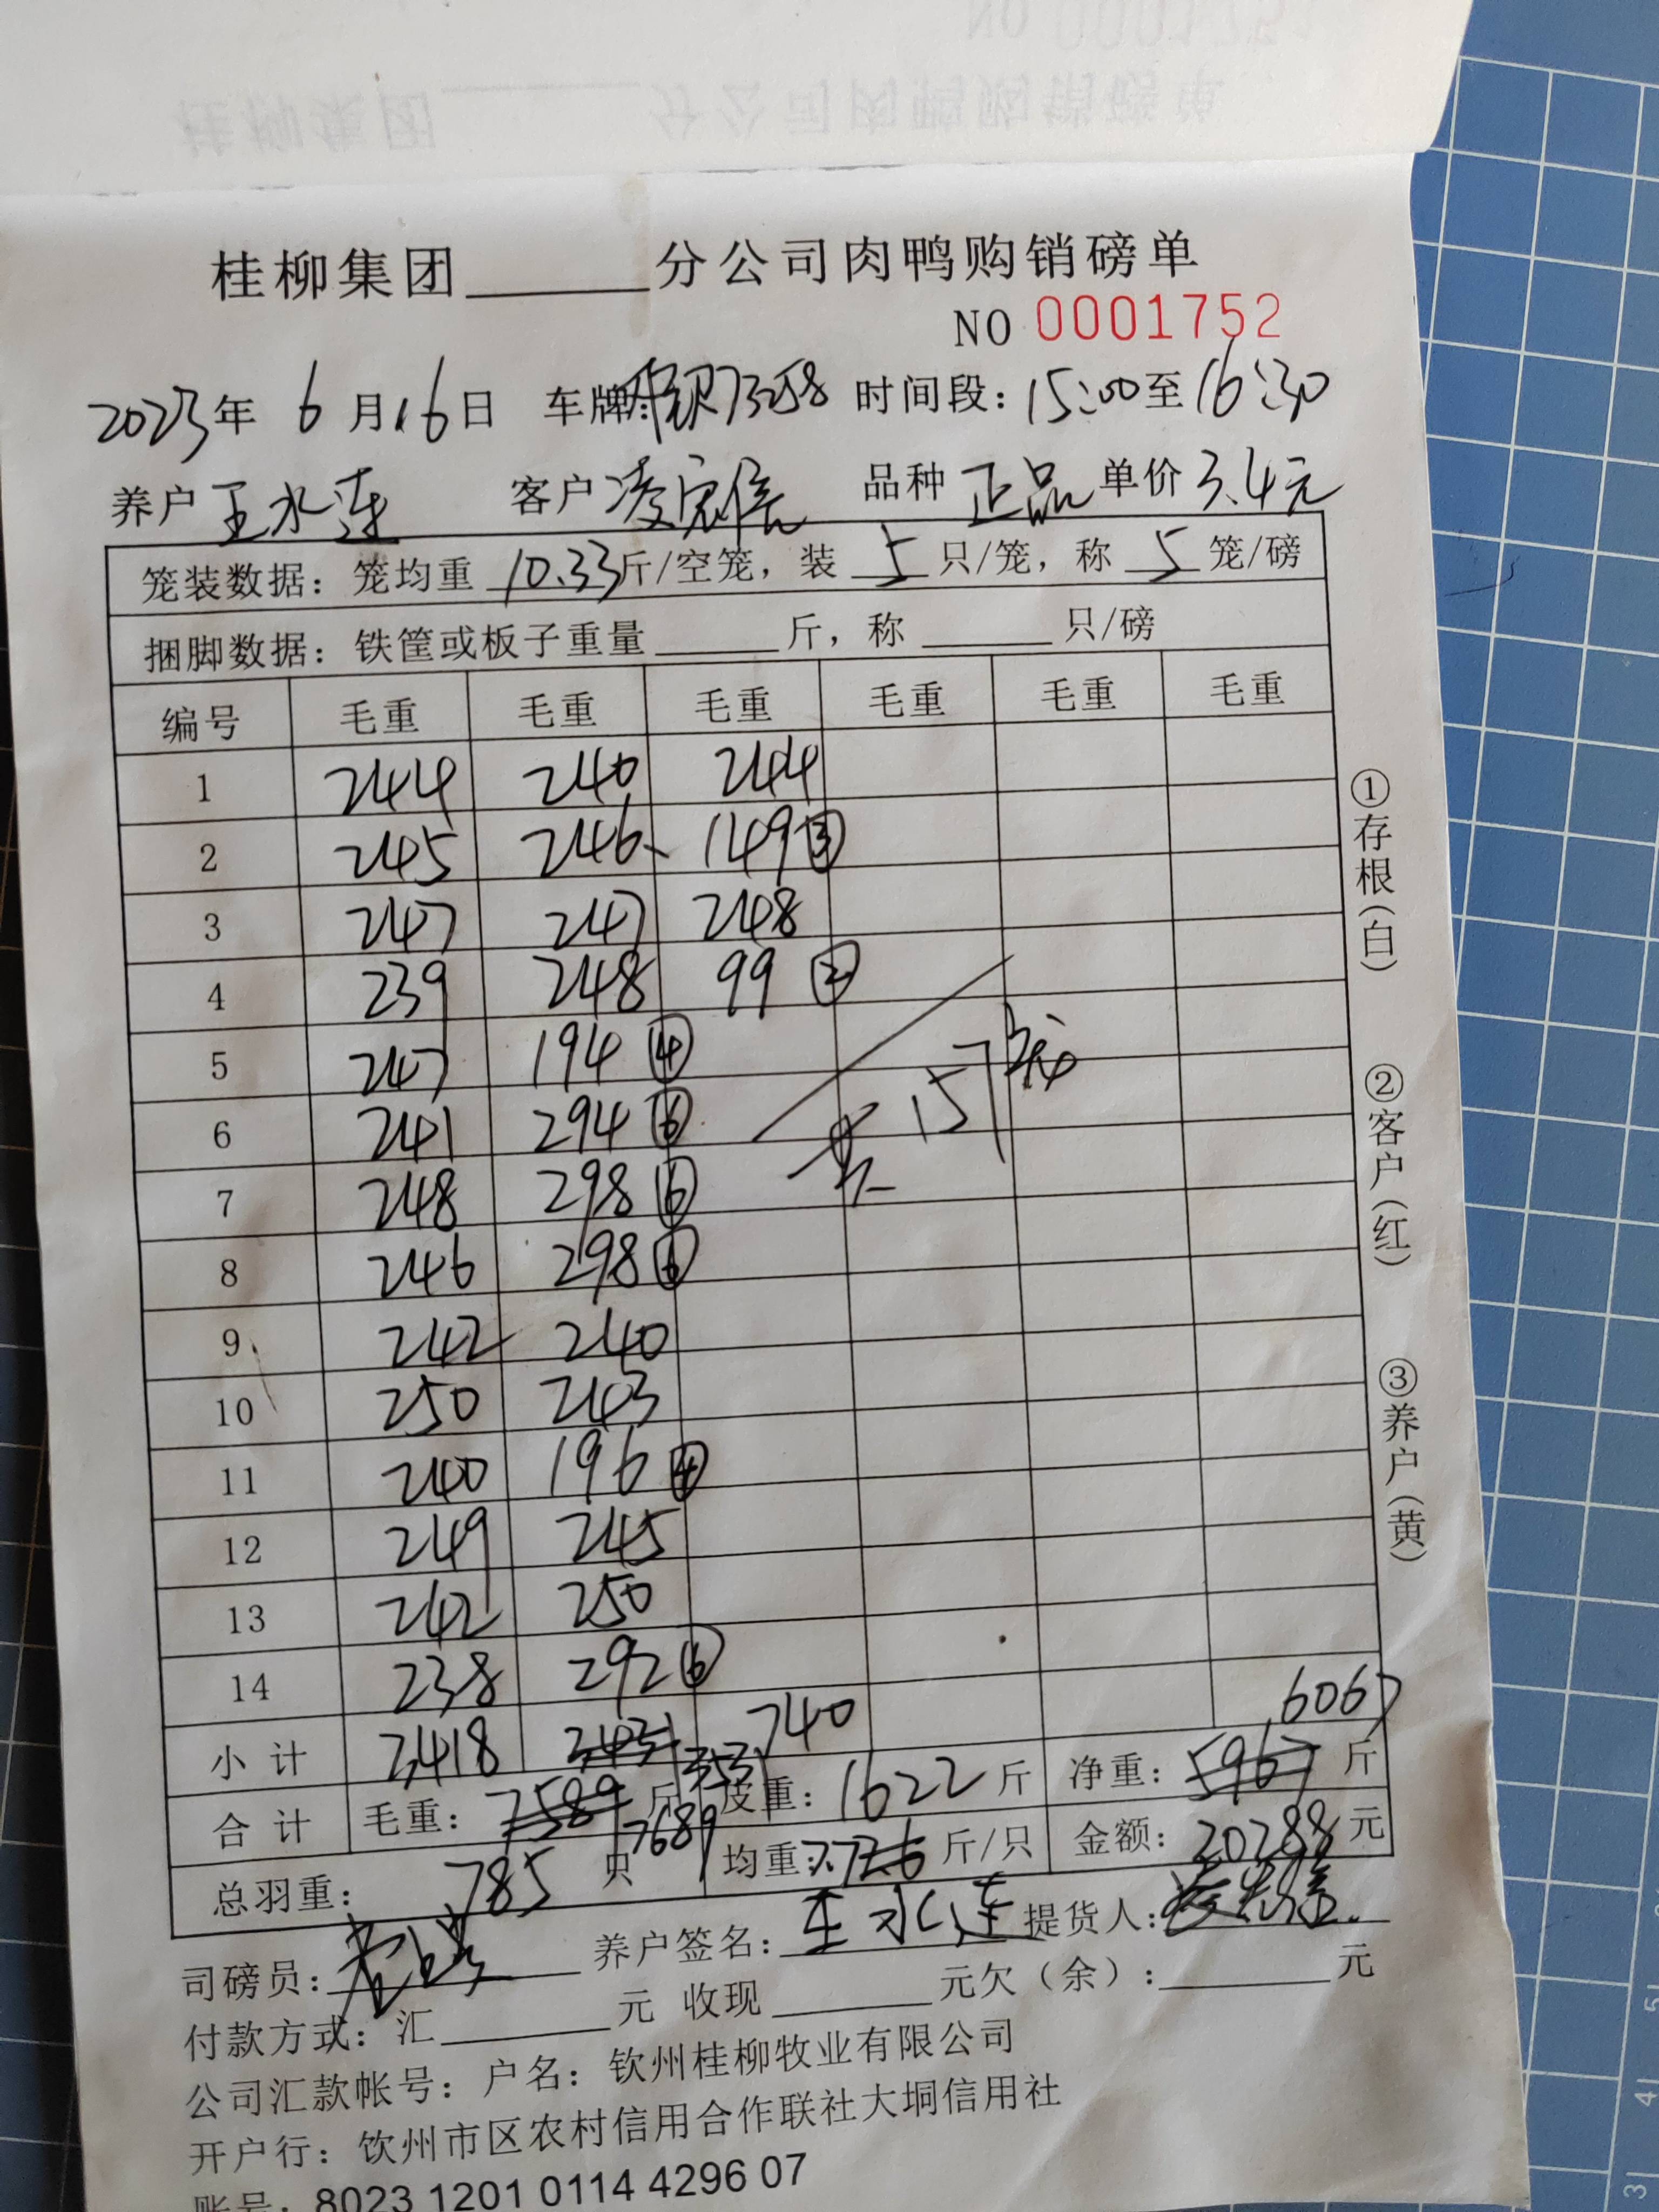 桂柳集团______分公司肉鸭购销磅单
NO 0001752
2023年 6 月16日 车牌: 时间段: 15:00至16:30
养户 王水连 客户 凌 品种 正品 单价 3.4元
笼装数据: 笼均重 10.33斤/空笼, 装 5 只/笼, 称 5 笼/磅
捆脚数据: 铁筐或板子重量______斤, 称______只/磅
编号 毛重 毛重 毛重 毛重 毛重 毛重
1 244 240 244
2 245 246 149③
3 247 247 248
4 239 248 99②
5 247 194④
6 241 294⑥
共157笼
7 248 298⑥
8 246 298⑥
9 242 240
10 250 243
11 240 196④
12 249 245
13 242 250
14 238 292⑥
小计 3418 3431 3531 740 6067
合计 毛重: 7589 斤 7689 皮重: 1622 斤 净重: 5967 斤
总羽重: 785 只 均重: 7.726 斤/只 金额: 20288 元
司磅员: 养户签名: 王水连 提货人:
付款方式: 汇______元 收现______元欠(余):______元
公司汇款帐号: 户名: 钦州桂柳牧业有限公司
开户行: 钦州市区农村信用合作联社大垌信用社
账号: 8023 1201 0114 4296 07
①存根(白)
②客户(红)
③养户(黄)